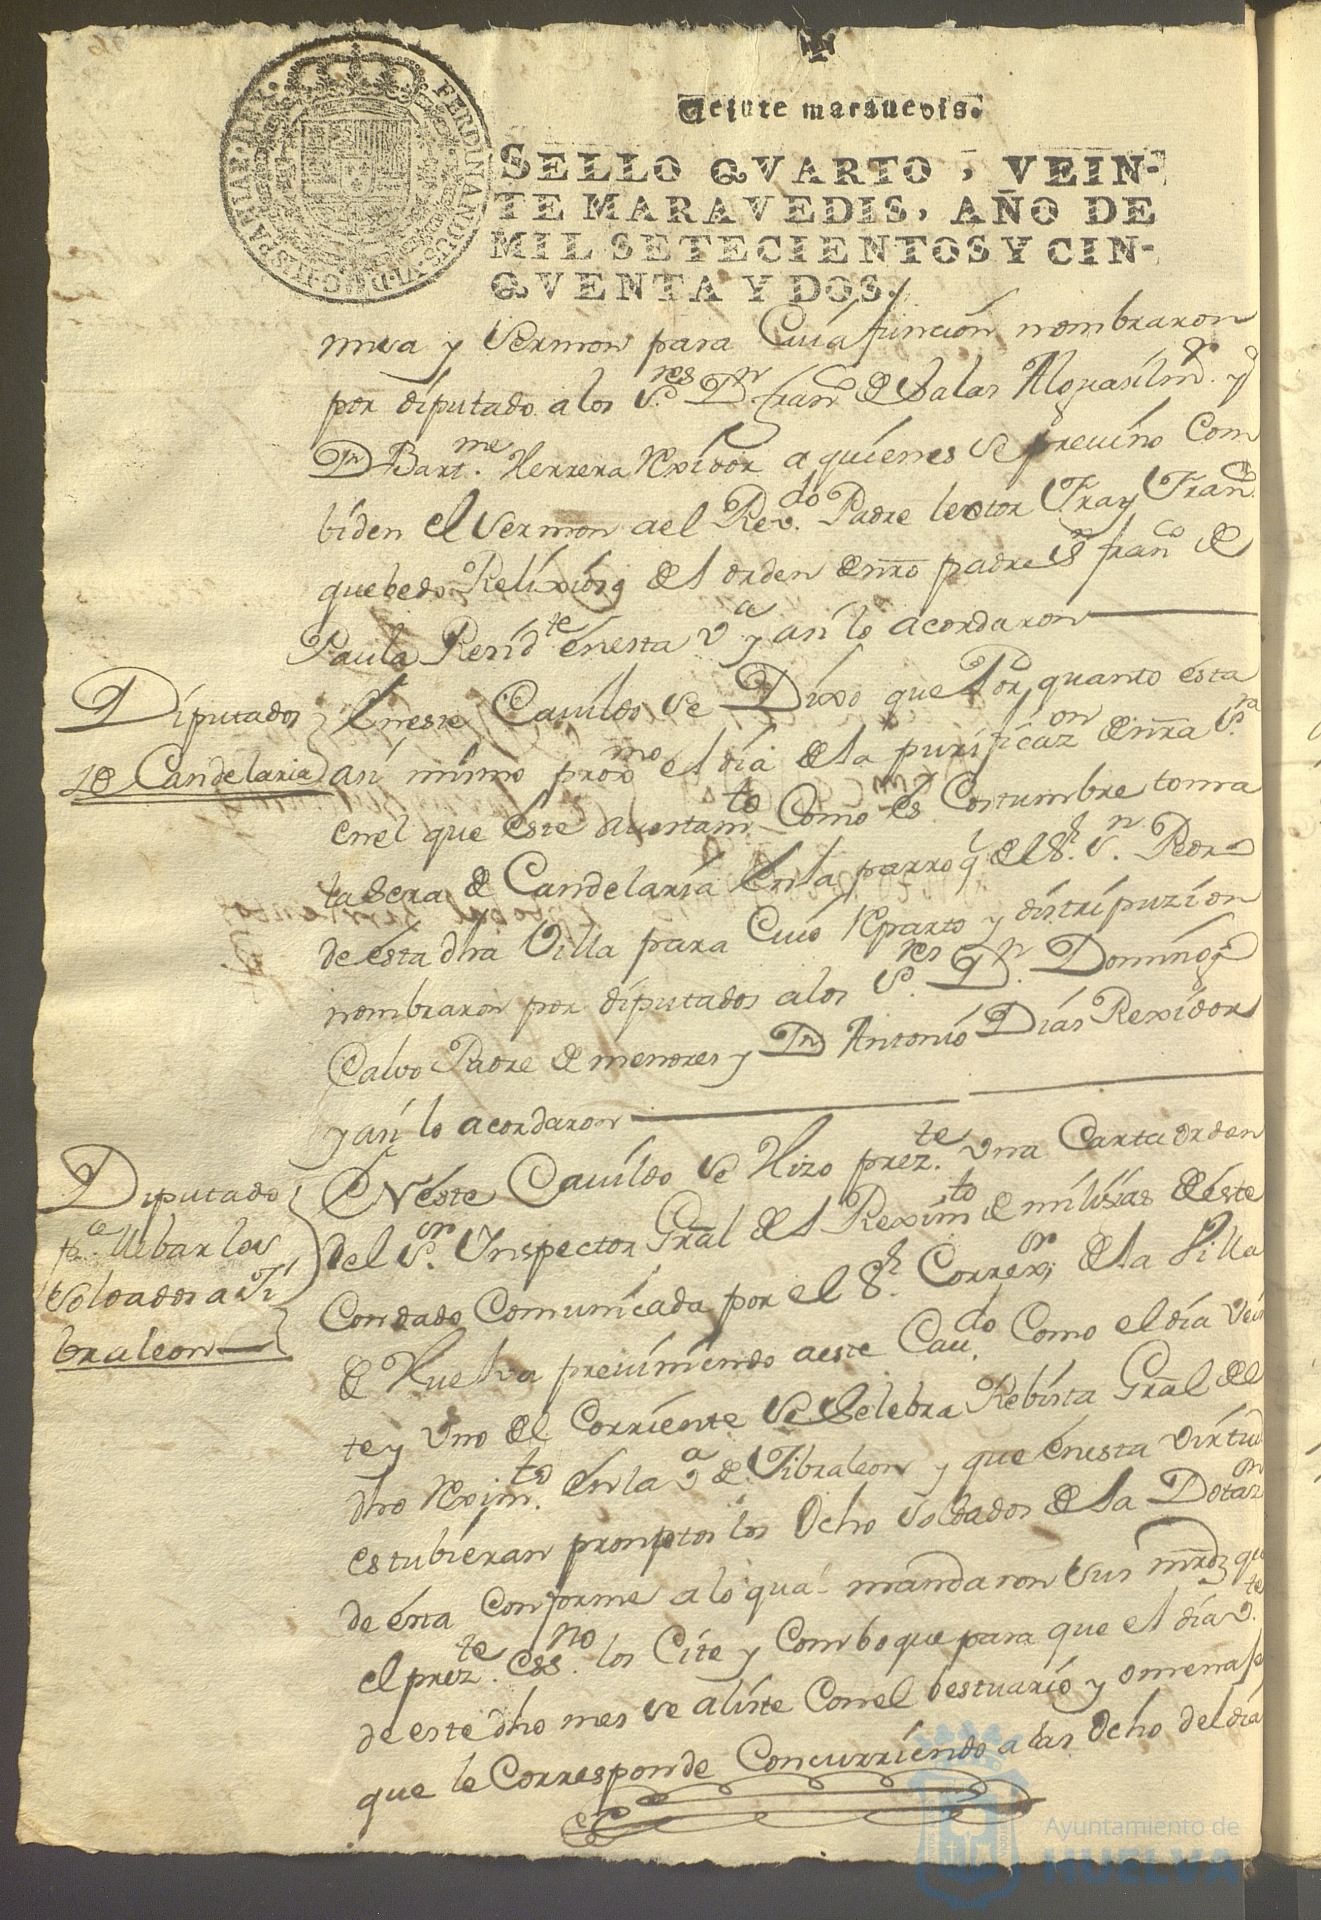 Veinte marauedis.
SELLO QVARTO, VEIN-
TE MARAVEDIS, AÑO DE
MIL SETECIENTOS Y CIN-
QVENTA Y DOS.
FERDINANDUS·VI·D·G·HISPANIAR·REX·
missa y Sermon para Cuia funcion nombraron
por diputado a los S.res Dn Franco de Salas Alguasil m.r y
Dn Bart.me Herrera Rexidor a quienes se preuino Com
biden el Sermon a el Rev.do Padre lector Fray Fran.co
quebedo Relixioso de el orden de nro padre Sn franco de
Paula Resid.te en esta v.a y asi lo acordaron
Diputados
de Candelaria
En este Cauildo se Dixo que Por quanto esta
asi mismo proxmo el dia de la purificaz.on de nra S.ra
en el que este aiuntam.to Como es Costumbre toma
la Sera de Candelaria en la parroql de el Sr. Sn. Pedro
de esta dha Villa para Cuio Reparto y distripuzion
nombraron por diputados a los S.res Dn. Domingo
Calvo Padre de menores y Dn Antonio Dias Rexidor
y asi lo acordaron
Diputado
pa. llebar los
Soldados a Ji
braleon
En este Cauildo se Hizo prez.te una Carta orden
del S.or Inspector Gral de el Reximto de milisias de este
Condado Comunicada por el Sr. Correxor de la Villa
de Huelva preuiniendo a este Cau.do Como el dia vein
te y uno de el Corriente Se Selebra Rebista Gral de el
dho Reximto. en la v.a de Jibraleon y que en esta virtud
estubieran promptos los Ocho Soldados de la Dotaz.on
de esta Conforme a lo qual mandaron Sus mrdz que
el prez.te ess.no los Cite y Comboque para que el dia v.te
de este dho mes se aliste Con el bestuario y omenaje
que le Corresponde Concurriendo a las Ocho del dia
Ayuntamiento de
HUELVA